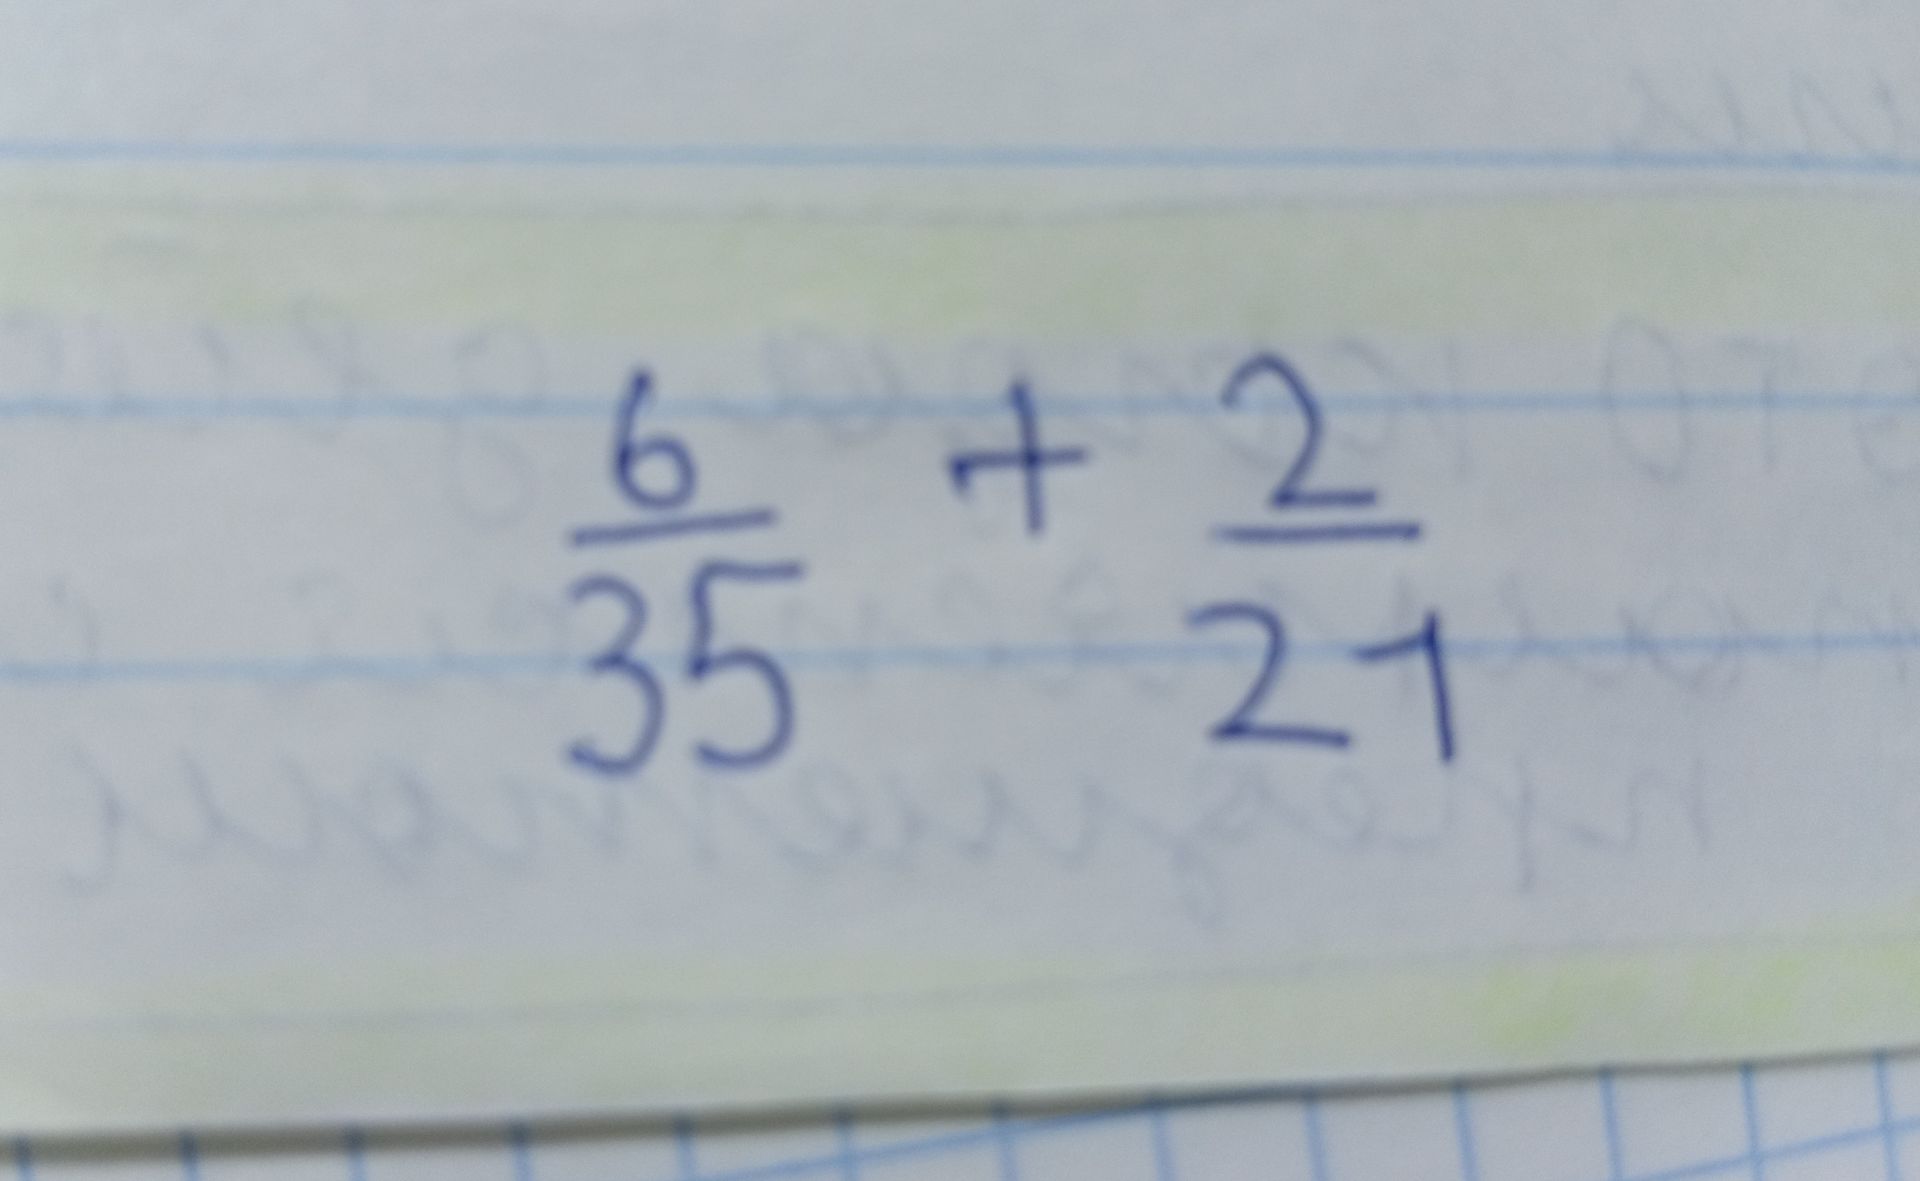 6/35 + 2/21